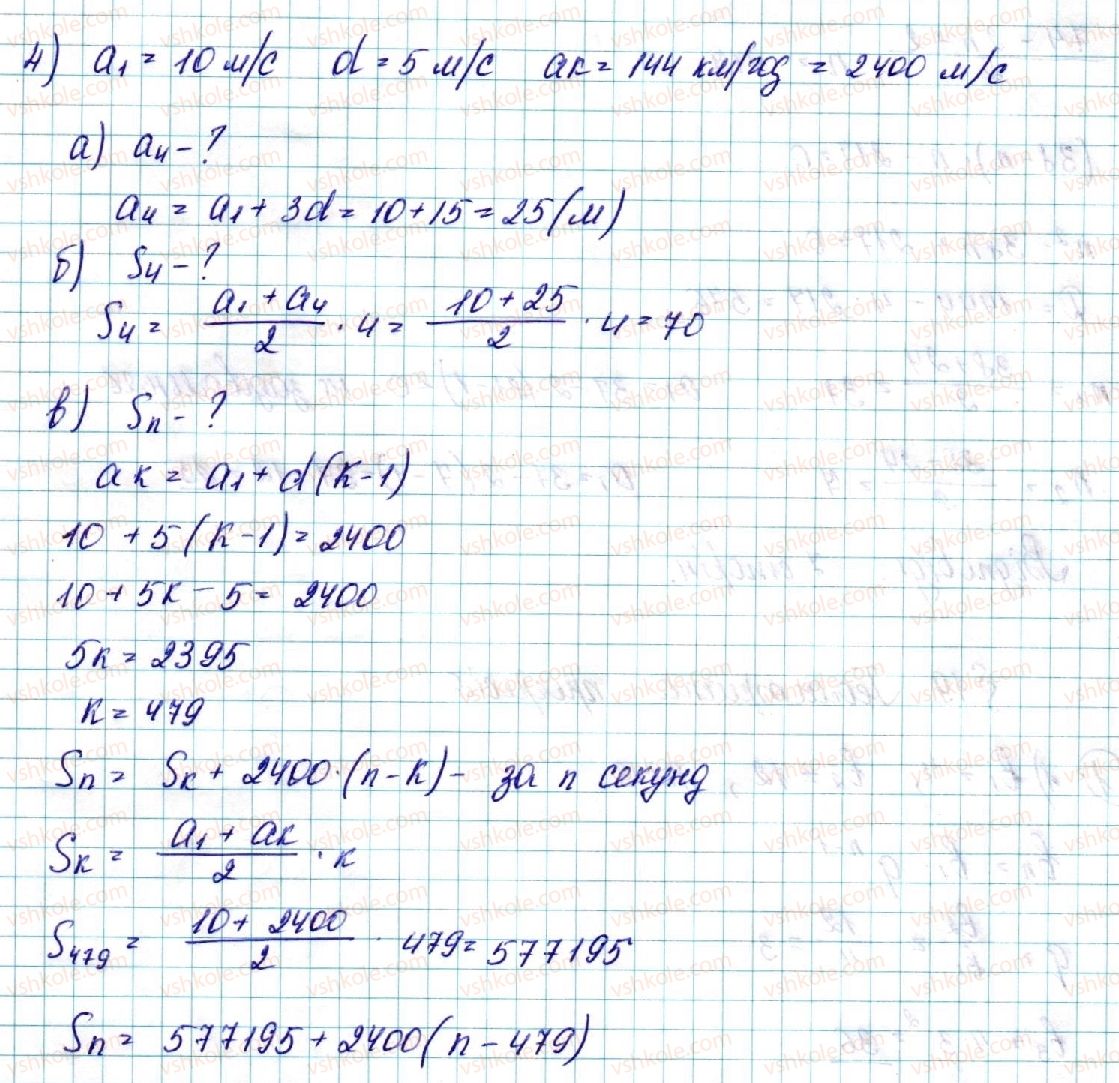 4) a₁ = 10 м/с d = 5 м/с aк = 144 км/год = 2400 м/с
а) a₄ - ?
a₄ = a₁ + 3d = 10 + 15 = 25 (м)
б) S₄ - ?
S₄ = (a₁ + a₄)/2 · 4 = (10 + 25)/2 · 4 = 70
в) Sₙ - ?
aк = a₁ + d(к-1)
10 + 5(к-1) = 2400
10 + 5к - 5 = 2400
5к = 2395
к = 479
Sₙ = Sк + 2400·(n-к) - за n секунд
Sк = (a₁ + aк)/2 · к
S₄₇₉ = (10 + 2400)/2 · 479 = 577195
Sₙ = 577195 + 2400(n - 479)